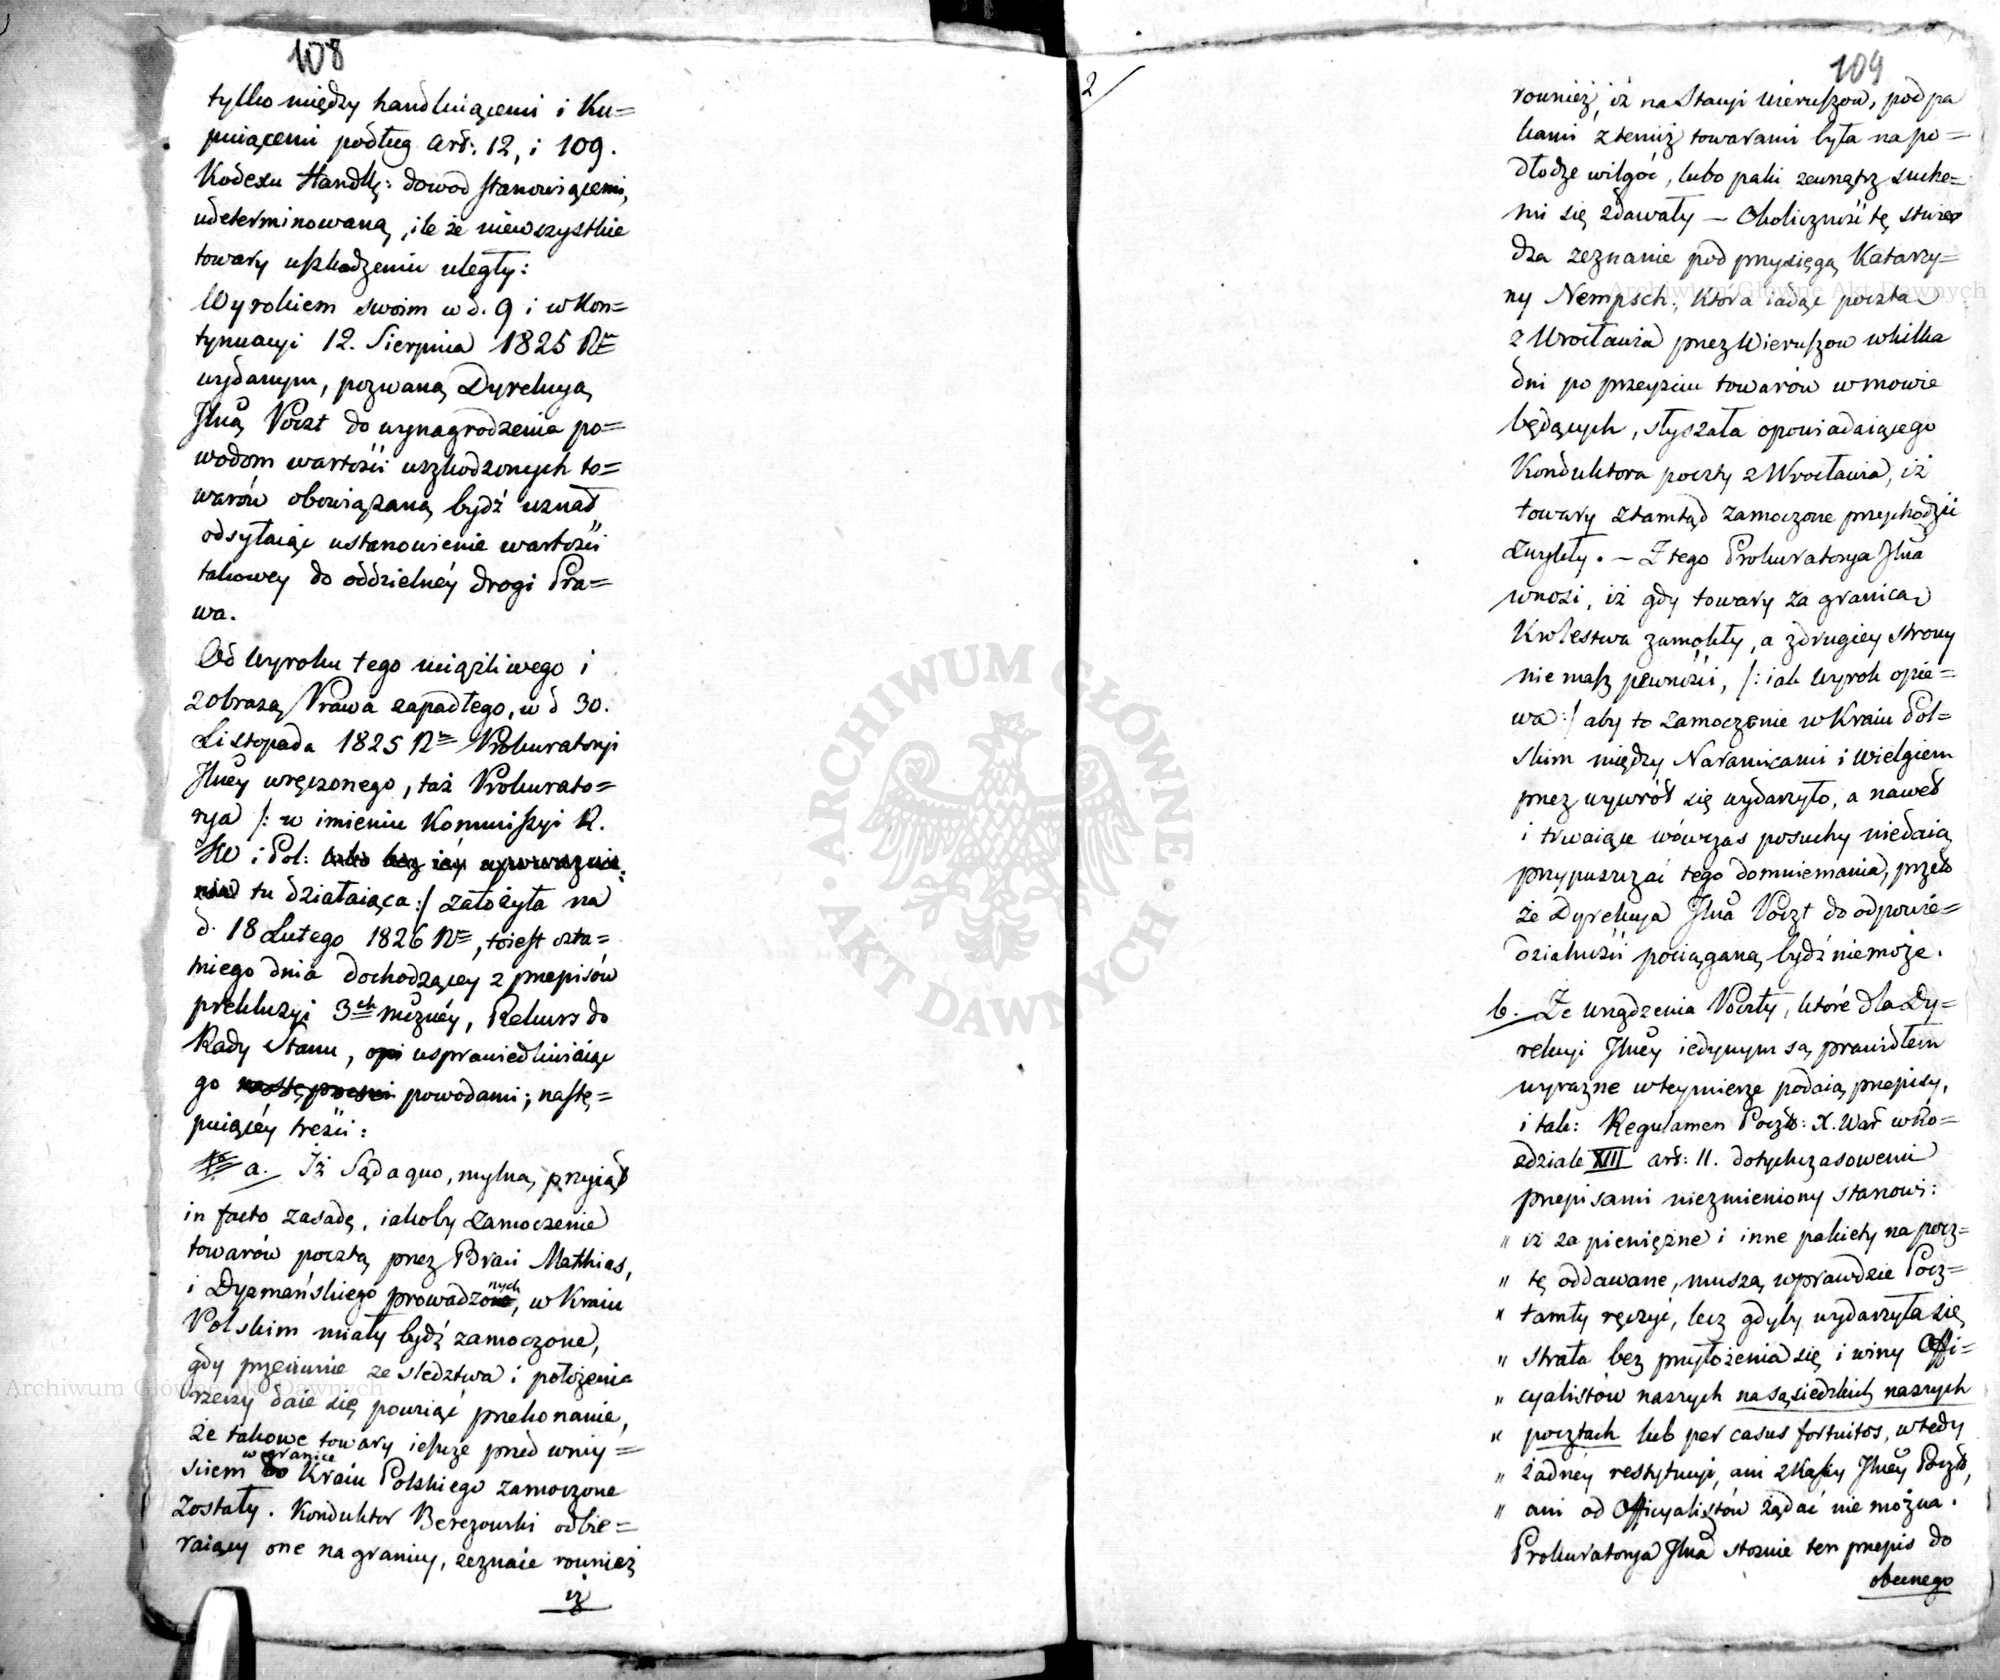 108
tylko między handluiącemi i Ku=
puiącemi podług art: 12, i 109.
Kodexu Handlg: dowod stanowiącemi,
udeterminowaną, ile że niewszystkie
towary uszkodzeniu uległy:
Wyrokiem swoim w d. 9 i w kon=
tynuacyi 12. Sierpnia 1825 R
wydanym, pozwaną Dyrekcyą
Jlną Poczt do wynagrodzenia po=
wodom wartości uszkodzonych to=
warów obowiązaną bydź uznał
odsyłaiąc ustanowienie wartości
takowey do oddzielnéy drogi Pra=
wa.
Od Wyroku tego uciążliwego i
z obrazą Prawa zapadłego, w d 30.
Listopada 1825 R Prokuratoryi
Jlney wręczonego, taż Prokurato=
rya /: w imieniu Kommissyi R.
i Pol: tu działaiąca :/ założyła na
d. 18 Lutego 1826 R, toiest osta=
tniego dnia dochodzącey z przepisów
prekluzyi 3ch mcznéy, Rekurs do
Rady Stanu, usprawiedliwiaiąc
go powodami; nastę=
puiącéy treści:
a. Iż Sąd a quo, mylną przyiął
in facto zasadę, iakoby zamoczenie
towarów pocztą przez Braci Mathias,
i Dyzmańskiego prowadzonych, w Kraiu
Polskim miały bydź zamoczone,
gdy przeciwnie ze sledztwa i położenia
rzeczy daie się powziąć przekonanie,
że takowe towary ieszcze przed wniy=
sciem w granice Kraiu Polskiego zamoczone
zostały. Konduktor Berezowski odbie=
raiący one na granicy, zeznaie rownież
iż
2/
109
rownież, iż na Stacyi Wieruszow, pod pa
kami z temiż towarami była na po=
dłodze wilgoć, lubo paki zewnątrz suche=
mi się zdawały — Okoliczność tę stwier
dza zeznanie pod przysięgą Katarzy=
ny Nempsch, ktora iadąc pocztą
z Wrocławia przez Wieruszow w kilka
dni po przeyściu towarów w mowie
będących, słyszała opowiadaiącego
Konduktora poczty z Wrocławia, iż
towary ztamtąd zamoczone przychodzić
zwykły. — Z tego Prokuratorya Jlna
wnosi, iż gdy towary za granicą
Krolestwa zamokły, a z drugiey strony
nie masz pewności, /: iak Wyrok opie=
wa :/ aby to zamoczenie w Kraiu Pol=
skim między Naramicami i Wielgiem
przez wywrót się wydarzyło, a nawet
i trwaiące wówczas posuchy niedaią
przypuszczać tego domniemania, przeto
że Dyrekcya Jlna Poczt do odpowie=
dzialności pociąganą bydź nie może.
b. Ze urządzenia Poczty, które dla Dy=
rekcyi Jlney iedynym są prawidłem
wyrazne w teymierze podaią przepisy,
i tak: Regulamen Poczt: X. War w Ro=
zdziale XIII art: 11. dotychczasowemi
przepisami niezmieniony stanowi:
" iż za pieniężne i inne pakiety na pocz=
" tę oddawane, muszą wprawdzie Pocz=
" tamty ręczyć, lecz gdyby wydarzyła się
" strata bez przyłożenia się i winy Offi=
" cyalistów naszych na sąsiedzkich naszych
" pocztach lub per casus fortuitos, wtedy
" żadnéy restytucyi, ani z Kassy Jlney Poczt,
" ani od Officyalistów żądać nie można.
Prokuratorya Jlna stosuie ten przepis do
obecnego
ARCHIWUM GŁÓWNE · AKT DAWNYCH ·
Archiwum Główne Akt Dawnych
Archiwum Główne Akt Dawnych